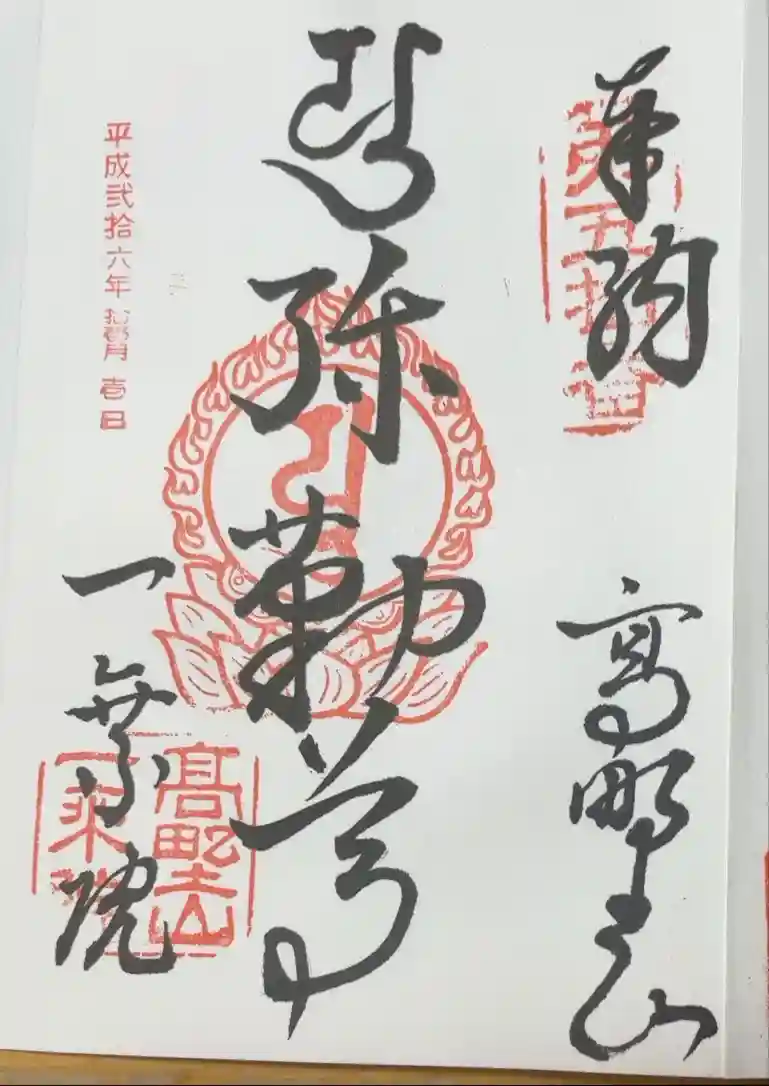 奉納
高野山
第五拾
弥勒尊
平成弐拾六年
月壱日
一乗院
髙野山
一乗院